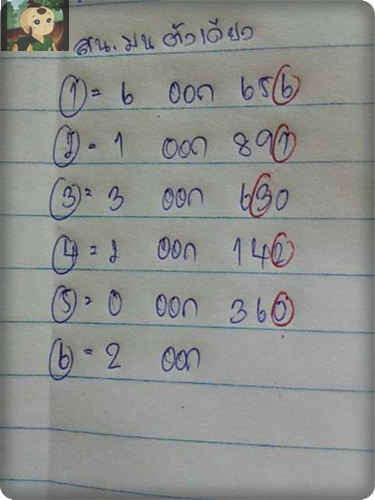 สน.มน ตัวเดียว
① = 6 ออก 656
② = 1 ออก 891
③ = 3 ออก 630
④ = 2 ออก 142
⑤ = 0 ออก 360
⑥ = 2 ออก